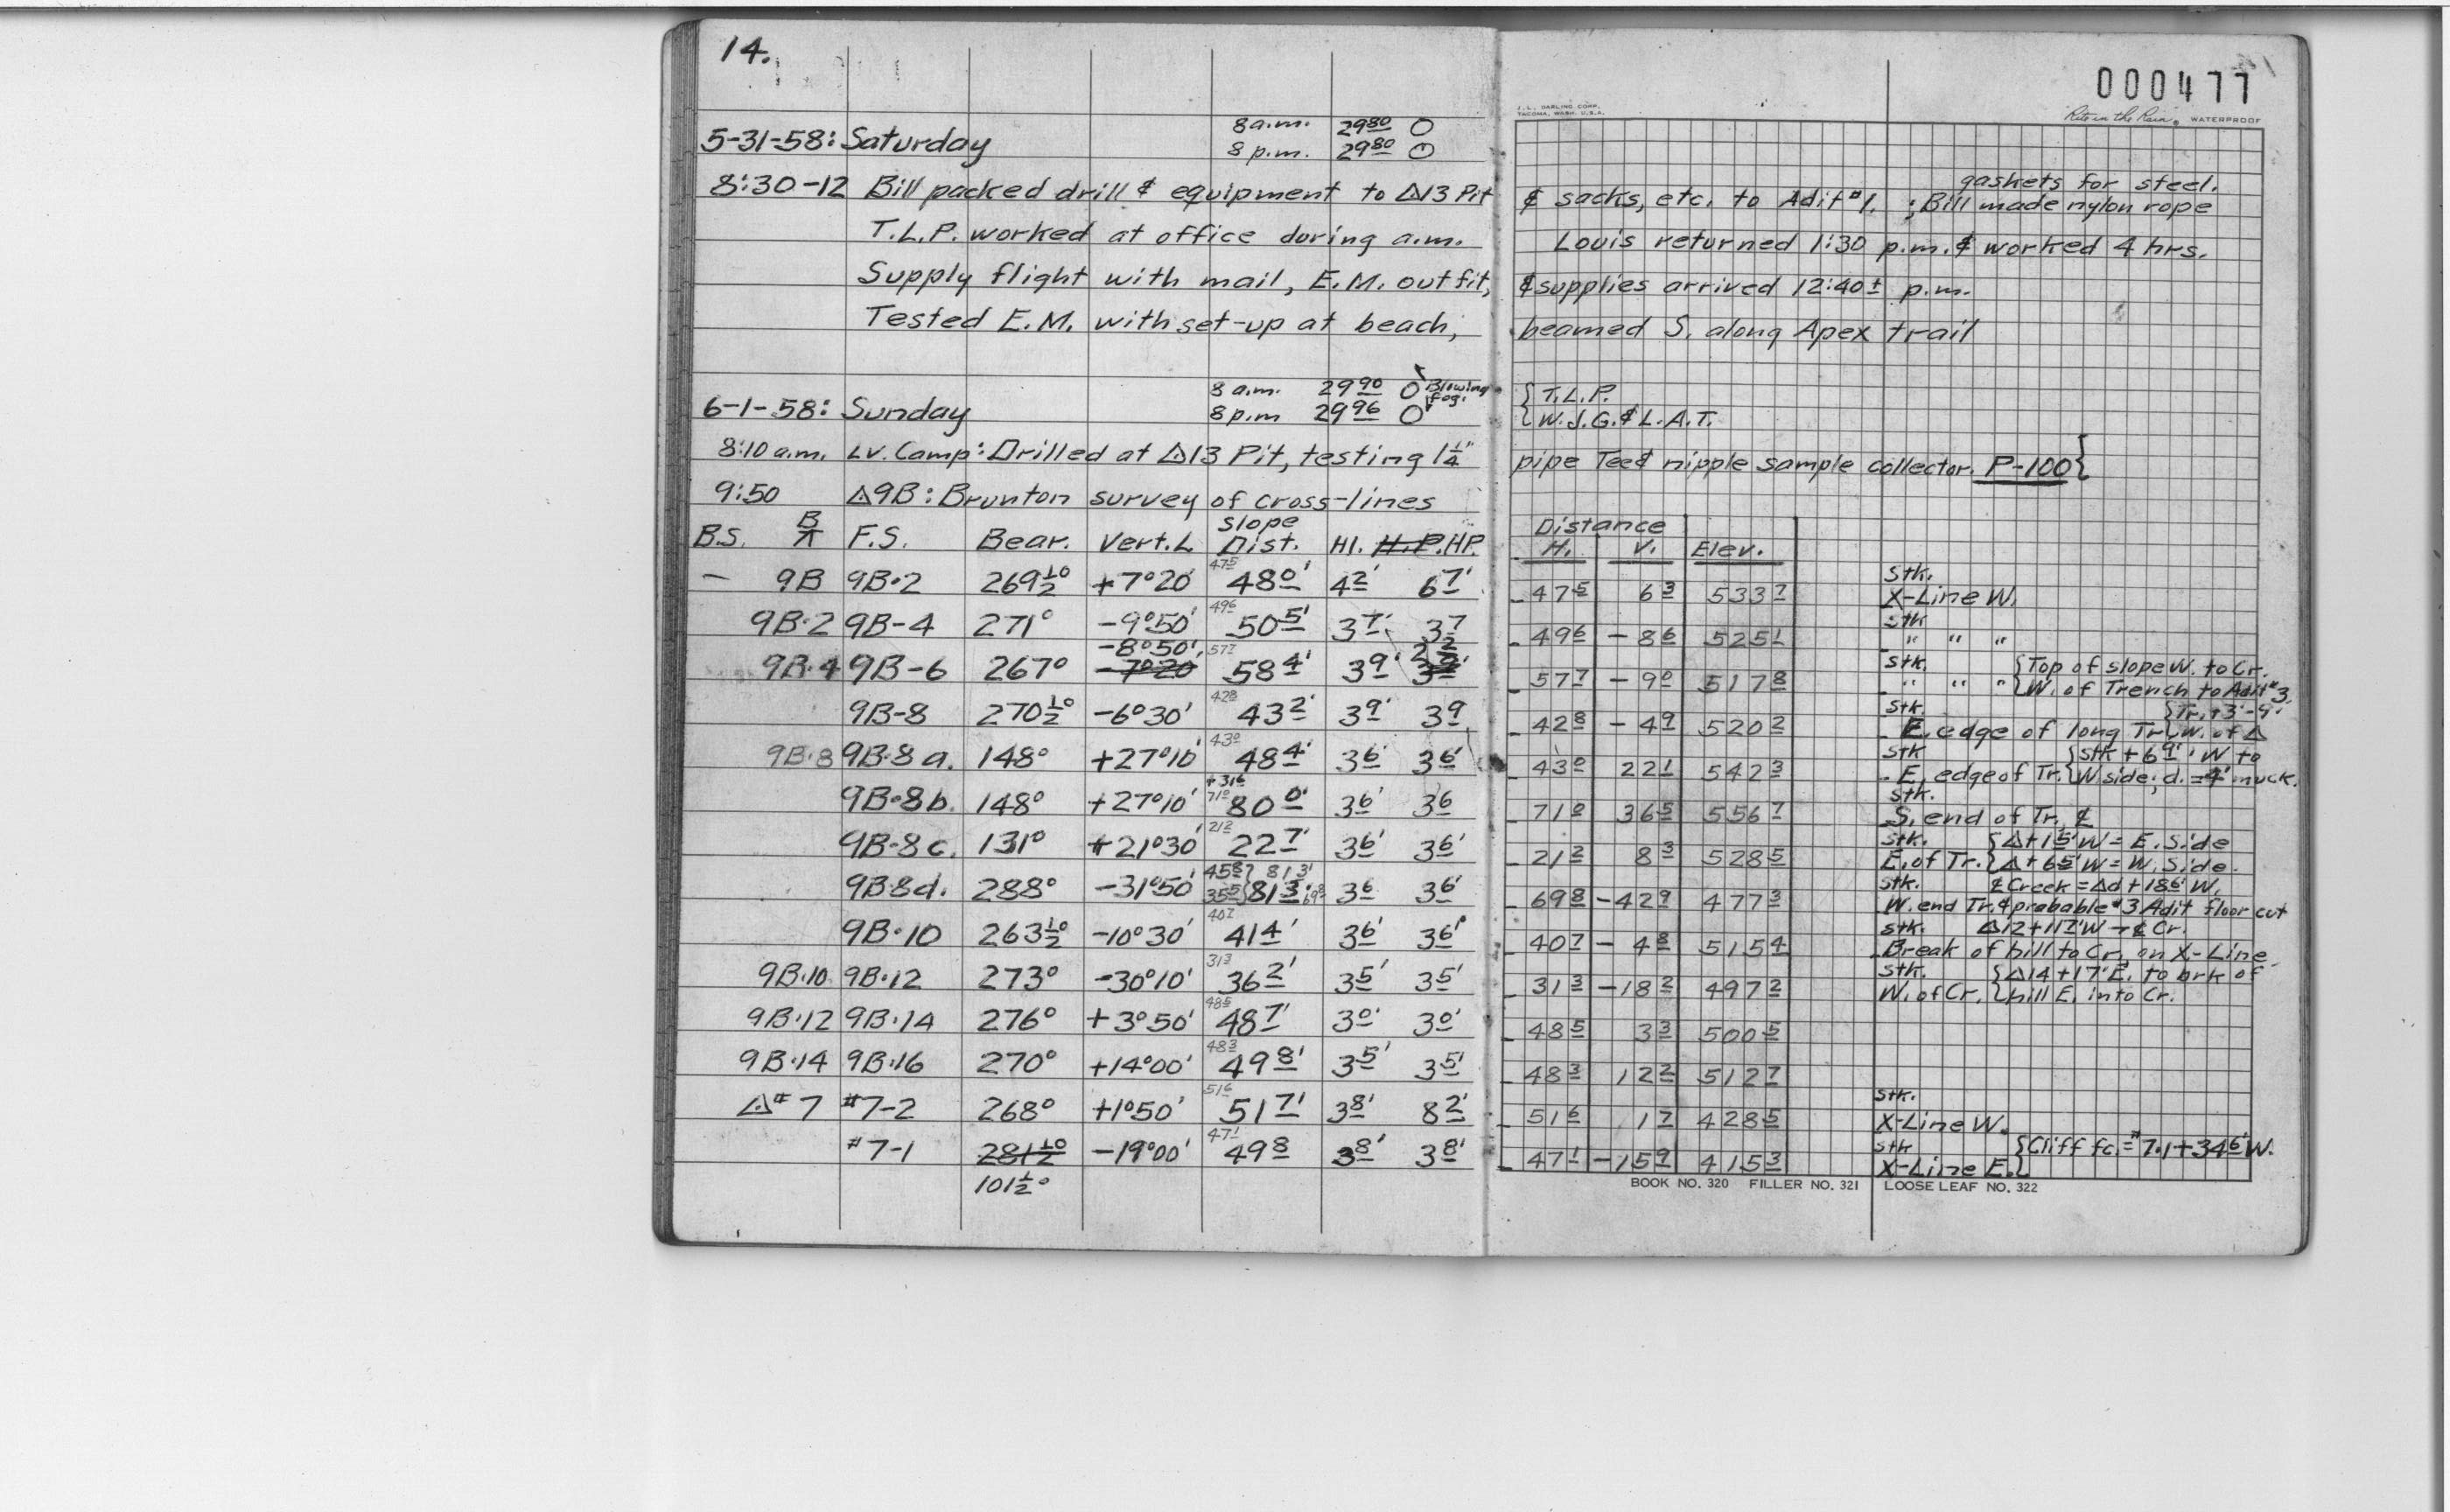 14.
000477
J. L. DARLING CORP.
TACOMA, WASH. U.S.A.
Rite in the Rain. WATERPROOF
8 a.m. 29 80 O
5-31-58: Saturday 8 p.m. 29 80 O
gaskets for steel.
8:30-12 Bill packed drill & equipment to Δ13 Pit & sacks, etc. to Adit #1. ; Bill made nylon rope
T.L.P. worked at office during a.m. Louis returned 1:30 p.m. & worked 4 hrs.
Supply flight with mail, E.M. outfit, & supplies arrived 12:40± p.m.
Tested E.M. with set-up at beach, beamed S. along Apex trail
8 a.m. 29 90 O Blowing fog. { T.L.P.
6-1-58: Sunday 8 p.m 29 96 O { W.J.G. & L.A.T.
8:10 a.m. Lv. Camp: Drilled at Δ13 Pit, testing 1¼" pipe Tee & nipple sample collector. P-100 }
9:50 Δ9B: Brunton survey of cross-lines
B.S. B/⊼ F.S. Bear. Vert.L Slope Dist. HI. H.P. HP. Distance H. V. Elev.
— 9B 9B·2 269½° +7°20' 47 5 48 0' 4 2' 6 7' 47 5 6 3 533 7 Stk. X-Line W.
9B·2 9B-4 271° -9°50' 49 6 50 5' 3 7' 3 7 49 6 -8 6 525 1 stk " " "
9B·4 9B-6 267° -8°50' -7°20 57 7 58 4' 3 9' 2 2 57 7 -9 0 517 8 stk. " " " { Top of slope W. to Cr. W. of Trench to Adit #3.
9B-8 270½° -6°30' 42 8 43 2' 3 9' 3 9 42 8 -4 9 520 2 stk. E. edge of long Tr. { Tr. +3'-9' W. of Δ
9B·8 9B·8a. 148° +27°10' 43 0 48 4' 3 6' 3 6' 43 0 22 1 542 3 stk E. edge of Tr. { stk + 6 9' W to W side; d. = 4' muck.
9B·8b. 148° +27°10' +31 6 71 0 80 0' 3 6' 3 6 71 0 36 5 556 7 stk. S. end of Tr. ¢
9B·8c. 131° +21°30' 21 2 22 7' 3 6' 3 6' 21 2 8 3 528 5 stk. E. of Tr. { Δ+1 5' W = E. Side Δ+6 5' W = W. Side.
9B8d. 288° -31°50' 45 8 35 5 } 81 3' 81 3' 69 8 3 6 3 6' 69 8 -42 9 477 3 stk. ¢ Creek = Δd + 18 6' W. W. end Tr. & probable #3 Adit floor cut
9B·10 263½° -10°30' 40 7 41 4' 3 6' 3 6' 40 7 -4 8 515 4 stk. Δ12 + 11 7' W → ¢ Cr. Break of hill to Cr. on X-Line
9B·10 9B·12 273° -30°10' 31 3 36 2' 3 5' 3 5' 31 3 -18 2 497 2 stk. W. of Cr. { Δ14 + 17' E. to brk of hill E. into Cr.
9B·12 9B·14 276° +3°50' 48 5 48 7' 3 0' 3 0' 48 5 3 3 500 5
9B·14 9B·16 270° +14°00' 48 3 49 8' 3 5' 3 5' 48 3 12 2 512 7
Δ#7 #7-2 268° +1°50' 51 6 51 7' 3 8' 8 2' 51 6 1 7 428 5 stk. X-Line W.
#7-1 281½° -19°00' 47 1 49 8 3 8' 3 8' 47 1 -15 9 415 3 stk X-Line E. { Cliff fc. = #7.1 + 34 6' W.
101½°
BOOK NO. 320 FILLER NO. 321 LOOSE LEAF NO. 322